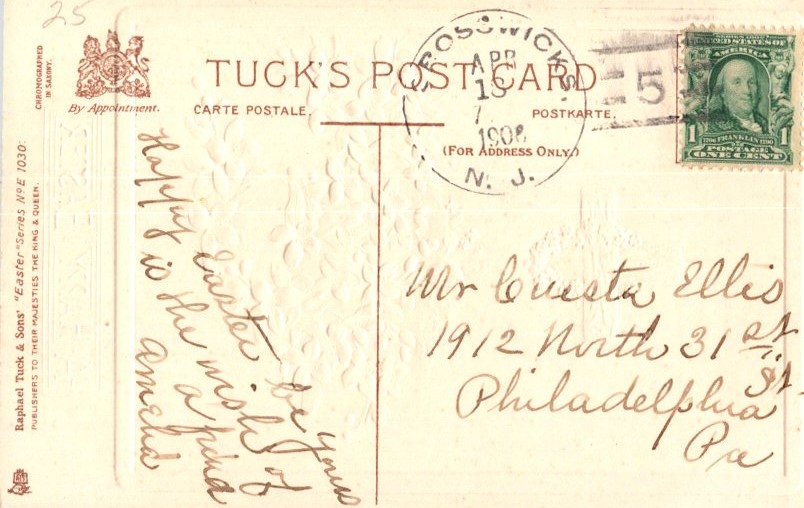 25
CHROMOGRAPHED
IN SAXONY.
By Appointment.
TUCK'S POST CARD
CARTE POSTALE.
POSTKARTE.
(FOR ADDRESS ONLY.)
CROSSWICKS.
APR
13
7
1906
N. J.
5
SERIES 1902
UNITED STATES OF
AMERICA
1 FRANKLIN 1
POSTAGE
ONE CENT
Raphael Tuck & Sons' "Easter" Series No E 1030:
PUBLISHERS TO THEIR MAJESTIES THE KING & QUEEN.
Happy Easter be yours
is the wish of
a friend
Amelia
Mr Cuesta Ellis
1912 North 31 st
St.
Philadelphia
Pa